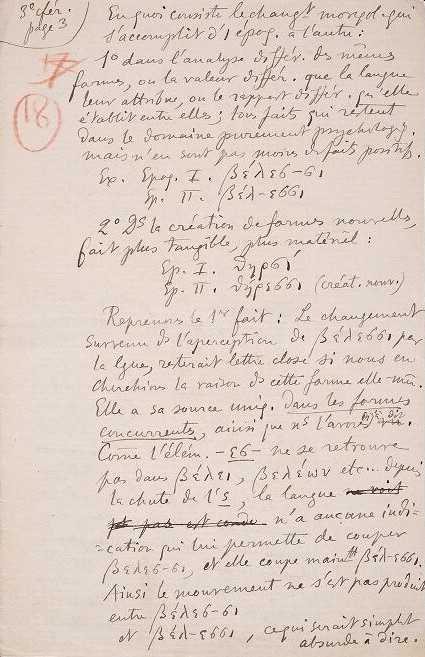 3e cfér.
page 3
17
18
En quoi consiste le changt morphol. qui
s'accomplit d'1 époq. à l'autre :
1° dans l'analyse différ. des mêmes
formes, ou la valeur différ. que la langue
leur attribue, ou le rapport différ. qu'elle
établit entre elles ; tous faits qui restent
dans le domaine purement psychologiq.
mais n'en sont pas moins des faits positifs.
Ex. Epoq. I. βέλεσ-σι
Ep. II. βέλ-εσσι
2° Ds la création de formes nouvelles,
fait plus tangible, plus matériel :
Ep. I. θηρσί
Ep. II. θήρεσσι (créat. nouv.)
Reprenons le 1er fait : Le changement
survenu ds l'aperception de βέλεσσι par
la lgue, resterait lettre close si nous en
cherchions la raison ds cette forme elle-mm.
Elle a sa source uniq. dans les formes
concurrentes, ainsi que ns l'avons déjà dit
Come l'élém. -εσ- ne se retrouve
pas dans βέλει, βελέων etc.. depuis
la chute de l's, la langue ne voit
pas n'a aucune indi-
=cation qui lui permette de couper
βελεσ-σι, et elle coupe maintt βέλ-εσσι.
Ainsi le mouvement ne s'est pas produit
entre βέλεσ-σι
et βέλ-εσσι, ce qui serait simplt
absurde à dire.